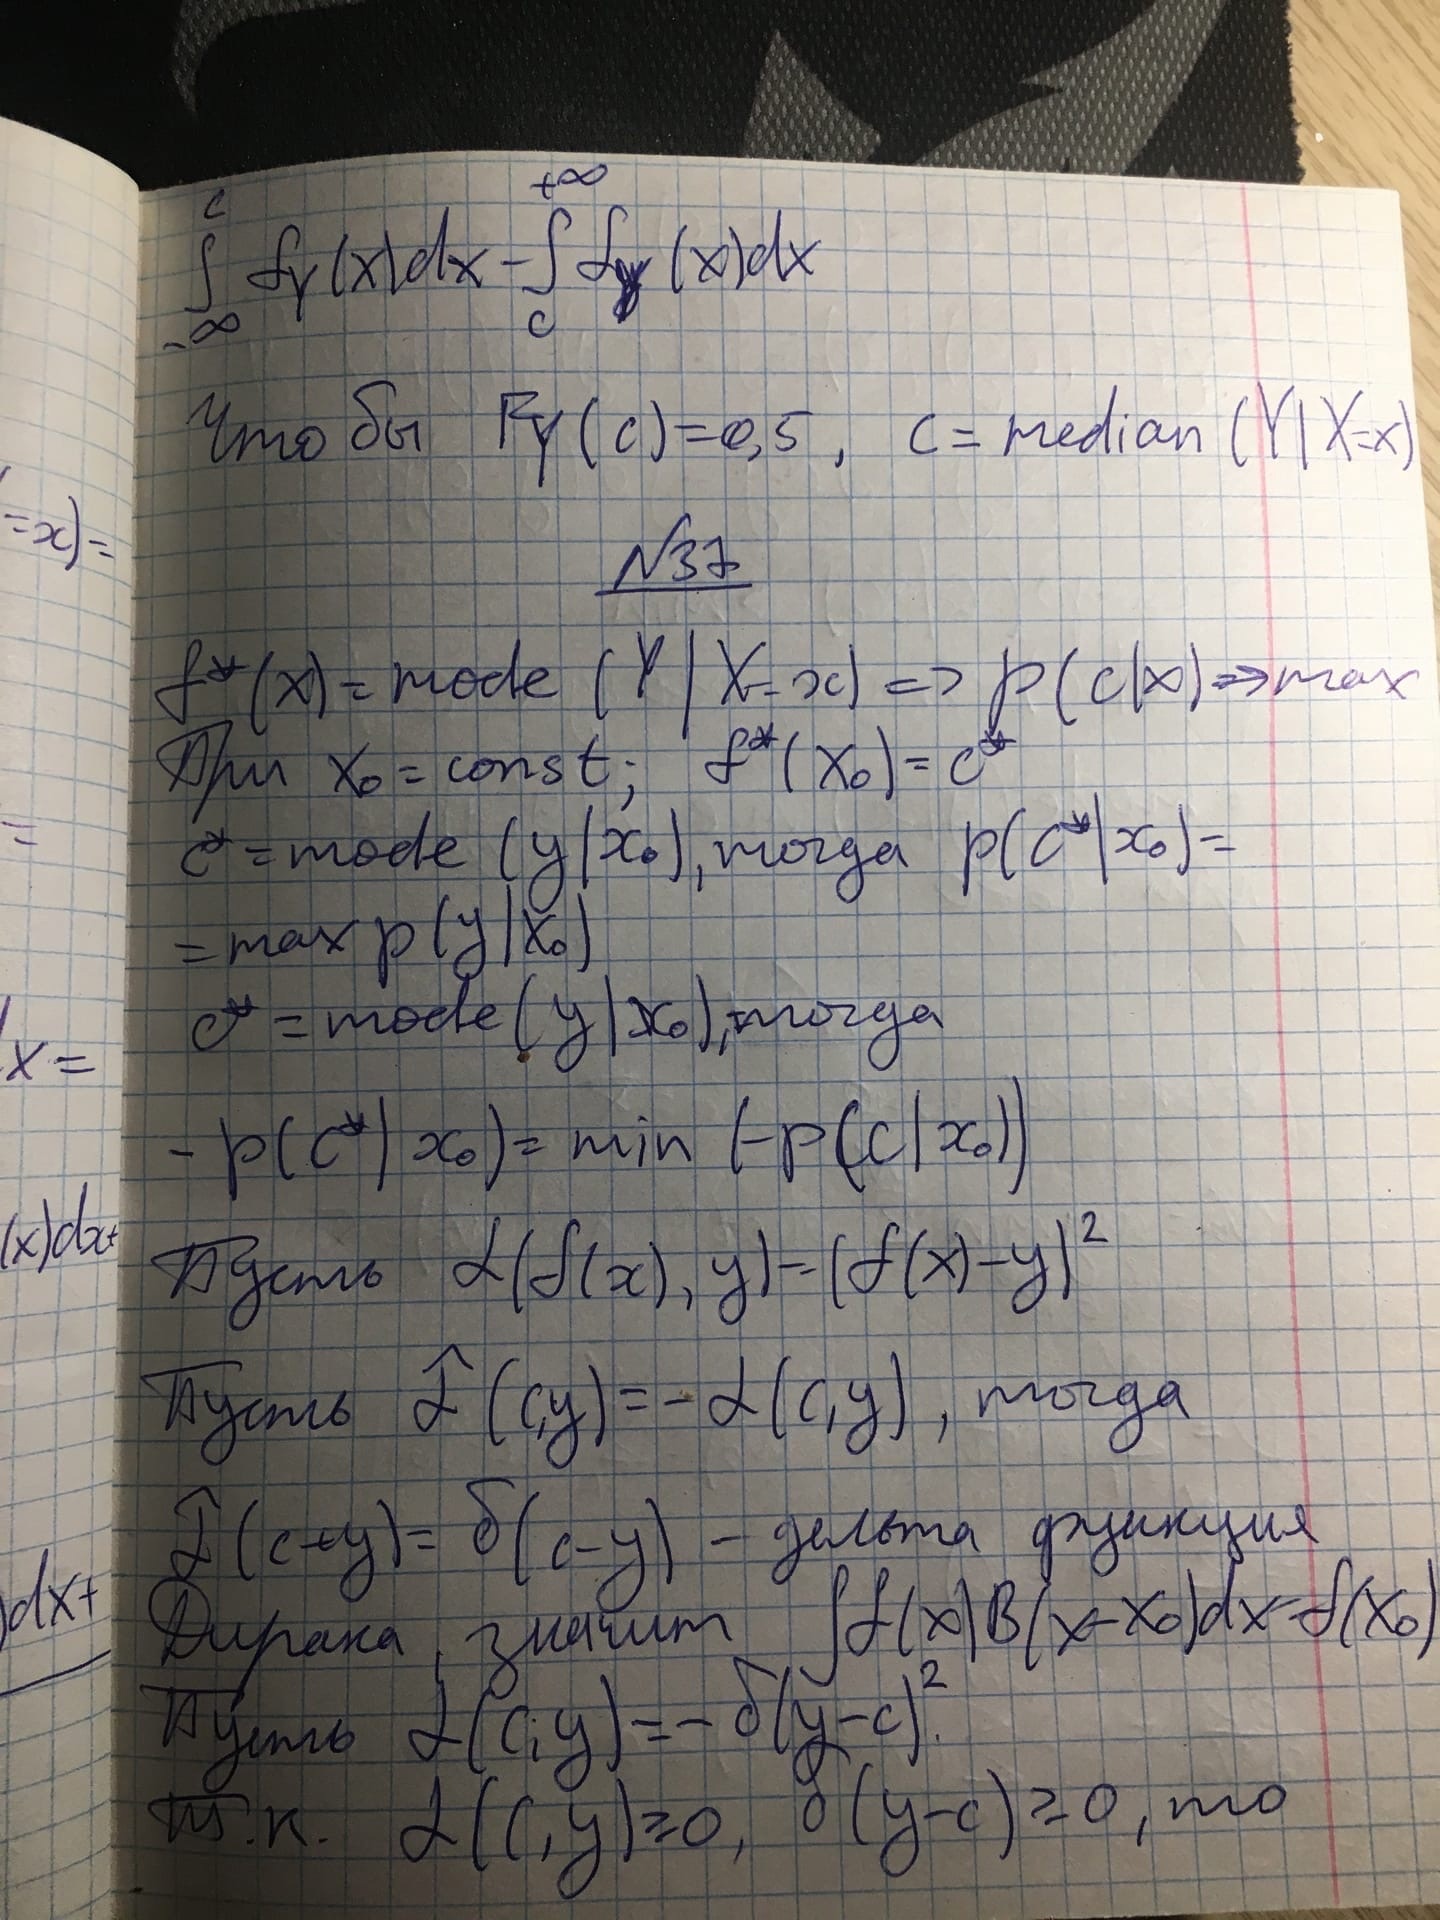 ∫_{-∞}^{c} f_Y(x)dx - ∫_{c}^{+∞} f_Y(x)dx
Что бы F_Y(c)=0,5, c=median(Y|X=x)
№37
f*(x)=mode(Y|X=x) => p(c|x) => max
При x₀=const; f*(x₀)=c*
c*=mode(y|x₀), тогда p(c*|x₀)=
=max p(y|x₀)
c*=mode(y|x₀), тогда
-p(c*|x₀)=min(-p(c|x₀))
Пусть L(f(x),y)=(f(x)-y)²
Пусть L̂(c,y)=-L(c,y), тогда
L̂(c+y)=δ(c-y) - дельта функция
Дирака, значит ∫f(x)B(x-x₀)dx=f(x₀)
Пусть L(c,y)=-δ(y-c)².
Т.к. L(c,y)≥0, δ(y-c)≥0, то
=x)=
=
x=
(x)dx+
)dx+